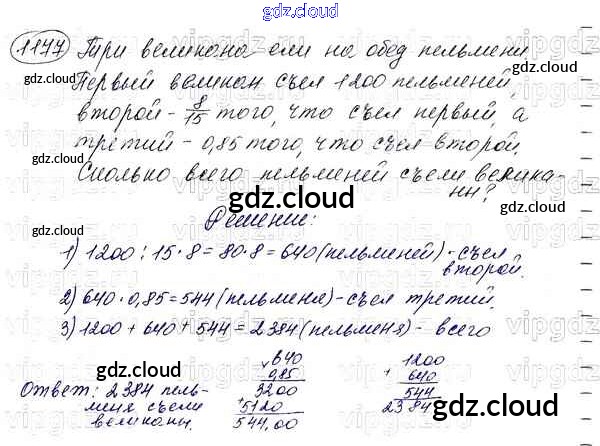 gdz.cloud
1177 Три великана ели на обед пельмени.
Первый великан съел 1200 пельменей,
второй - 8/15 того, что съел первый, а
третий - 0,85 того, что съел второй.
Сколько всего пельменей съели велика-
ны?
Решение:
1) 1200 : 15 · 8 = 80 · 8 = 640 (пельменей) - съел
второй.
2) 640 · 0,85 = 544 (пельменя) - съел третий.
3) 1200 + 640 + 544 = 2384 (пельменя) - всего
× 640
0,85
3200
+ 5120
544,00
1200
+ 640
544
2384
Ответ: 2384 пель-
меня съели
великаны.
gdz.cloud
gdz.cloud
gdz.cloud
gdz.cloud
gdz.cloud
gdz.cloud
gdz.cloud
gdz.cloud
gdz.cloud
gdz.cloud